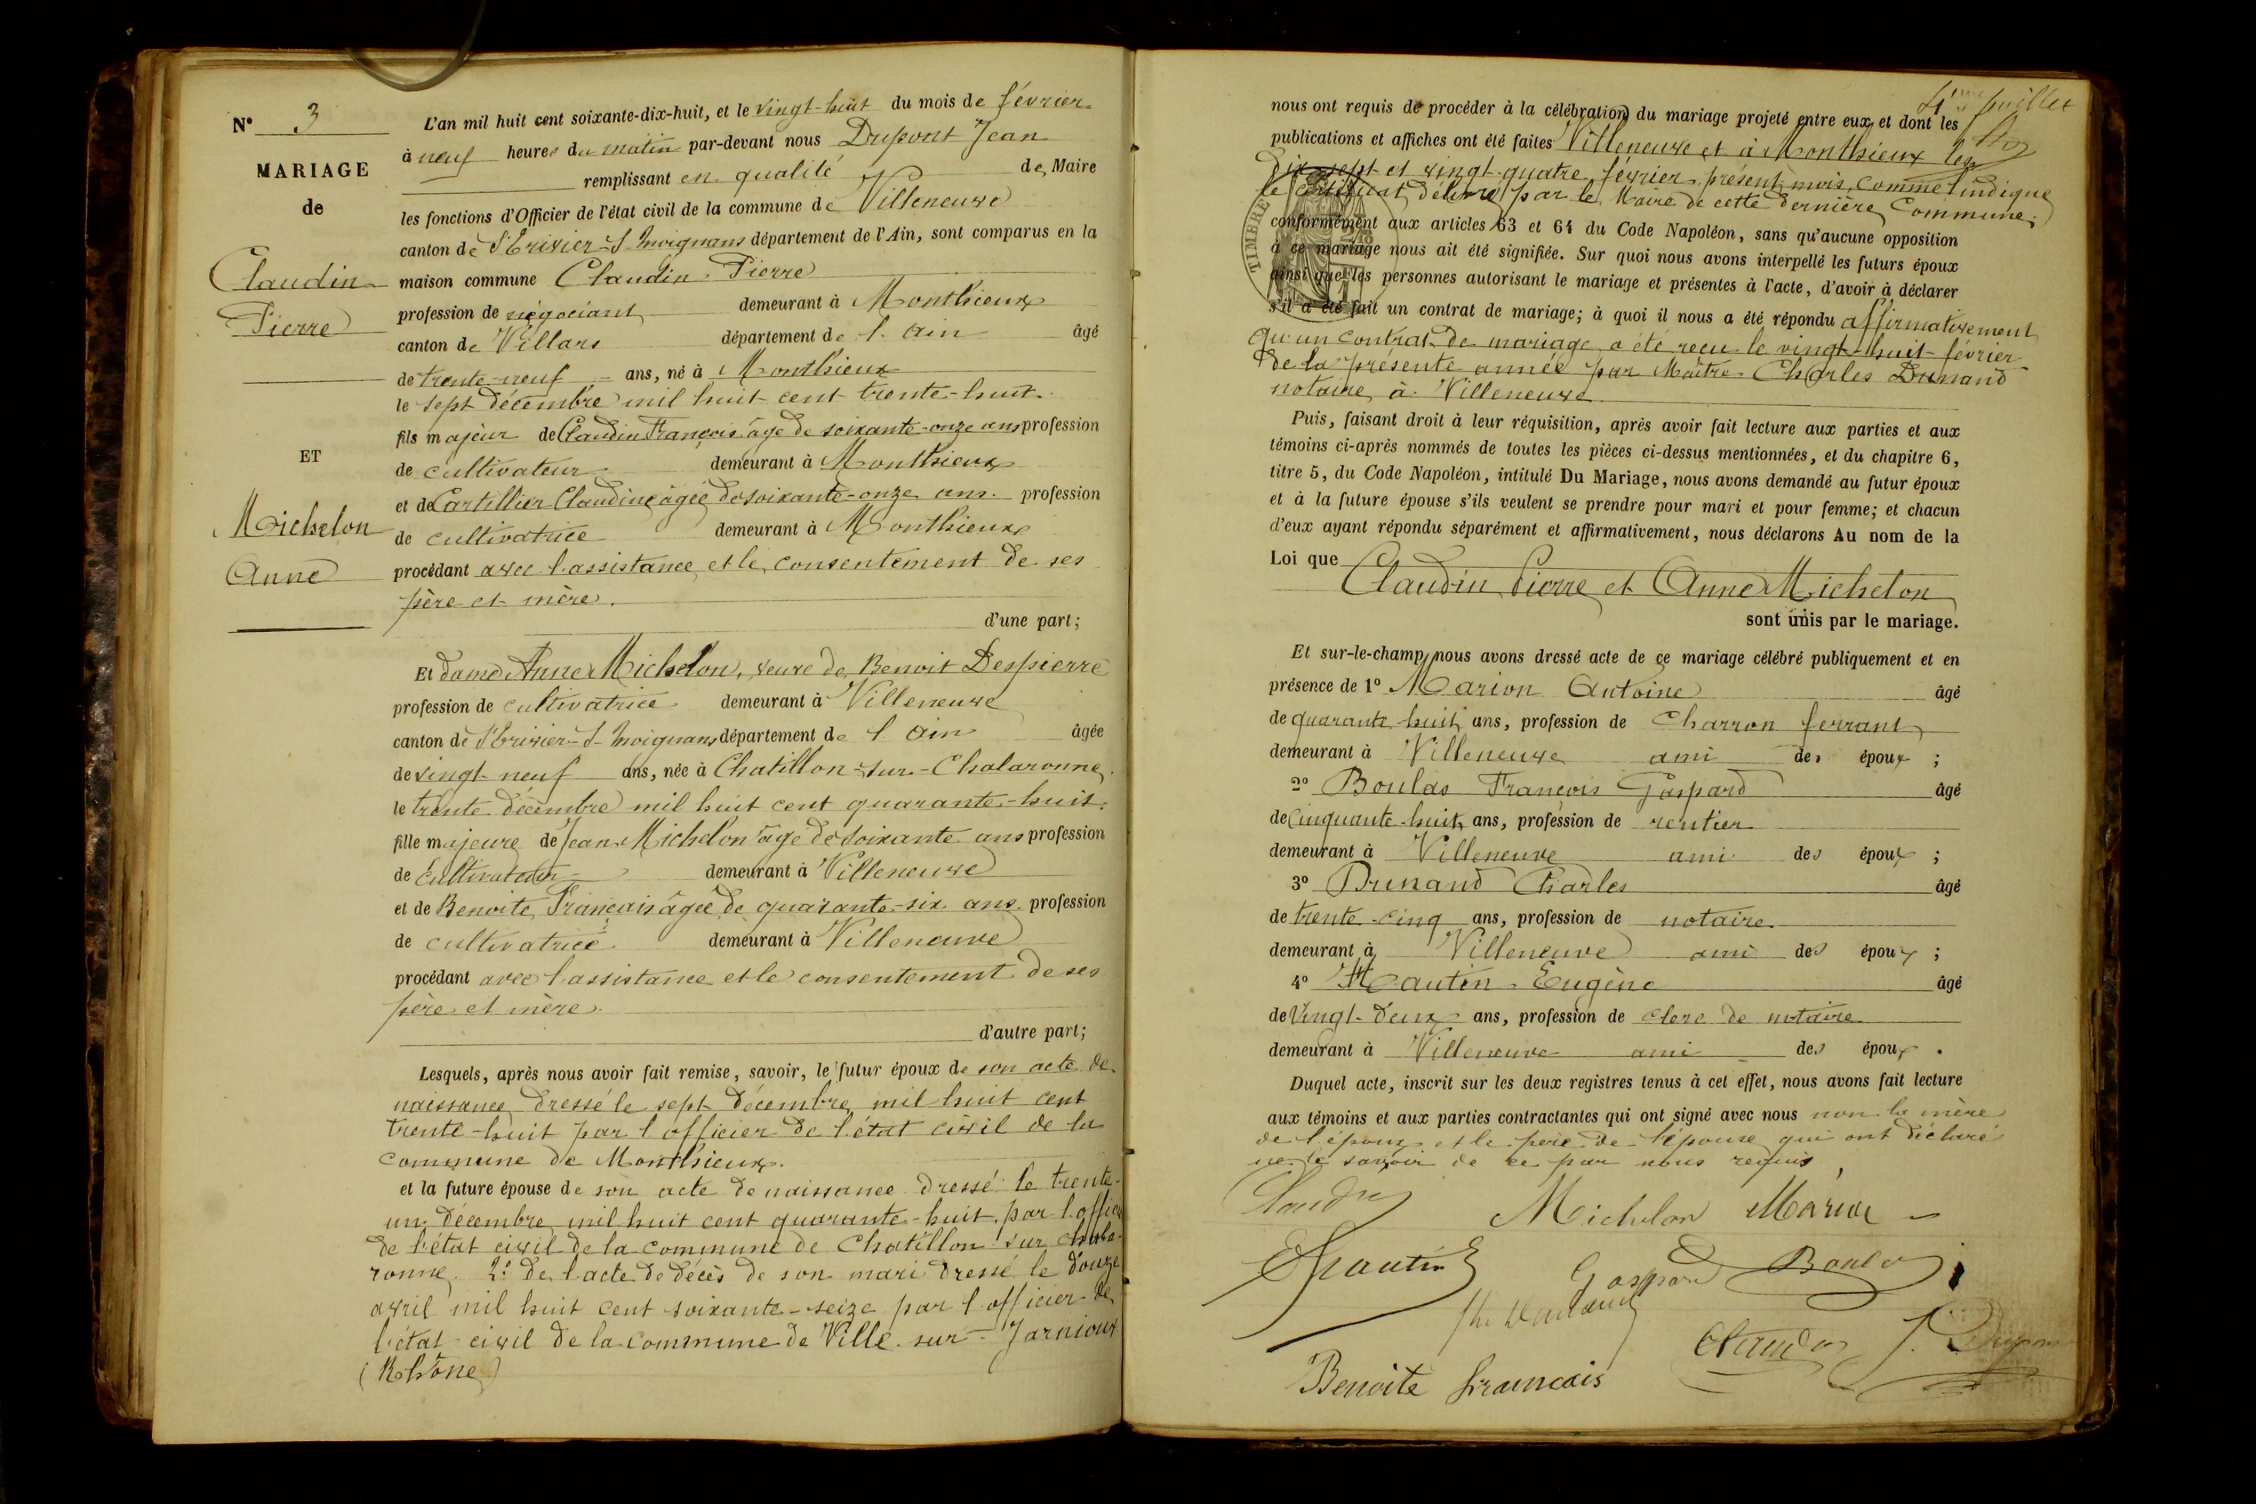 N° 3
MARIAGE
de
Claudin
Pierre
ET
Michelon
Anne
L'an mil huit cent soixante-dix-huit, et le vingt-huit du mois de février
à neuf heures du matin par-devant nous Dupont Jean
remplissant en qualité de Maire
les fonctions d'Officier de l'état civil de la commune de Villeneuve
canton de St Trivier-S-Moignans département de l'Ain, sont comparus en la
maison commune Claudin Pierre
profession de négociant demeurant à Monthieux
canton de Villars département de l'Ain âgé
de trente-neuf ans, né à Monthieux
le sept décembre mil huit cent trente-huit
fils majeur de Claudin François âgé de soixante-onze ans profession
de cultivateur demeurant à Monthieux
et de Cartillier Claudine âgée de soixante-onze ans profession
de cultivatrice demeurant à Monthieux
procédant avec l'assistance et le consentement de ses
père et mère.
d'une part;
Et dame Anne Michelon, veuve de Benoit Despierre
profession de cultivatrice demeurant à Villeneuve
canton de St Trivier-S-Moignans département de l'Ain âgée
de vingt-neuf ans, née à Chatillon-sur-Chalaronne
le trente décembre mil huit cent quarante-huit
fille majeure de Jean Michelon âgé de soixante ans profession
de cultivateur demeurant à Villeneuve
et de Benoite Français âgée de quarante-six ans profession
de cultivatrice demeurant à Villeneuve
procédant avec l'assistance et le consentement de ses
père et mère.
d'autre part;
Lesquels, après nous avoir fait remise, savoir, le futur époux de son acte de
naissance dressé le sept décembre mil huit cent
trente-huit par l'officier de l'état civil de la
commune de Monthieux.
et la future épouse de son acte de naissance dressé le trente-
un décembre mil huit cent quarante-huit par l'officier
de l'état civil de la commune de Chatillon sur Chala-
ronne. 2° de l'acte de décès de son mari dressé le douze
avril mil huit cent soixante-seize par l'officier de
l'état-civil de la commune de Ville-sur-Jarnioux
(Rhône)
feuillet
nous ont requis de procéder à la célébration du mariage projeté entre eux et dont les
publications et affiches ont été faites Villeneuve et à Monthieux les
dix-sept et vingt-quatre février présent mois, comme l'indique
le certificat délivré par le Maire de cette dernière Commune;
TIMBRE
conformément aux articles 63 et 64 du Code Napoléon, sans qu'aucune opposition
à ce mariage nous ait été signifiée. Sur quoi nous avons interpellé les futurs époux
ainsi que les personnes autorisant le mariage et présentes à l'acte, d'avoir à déclarer
s'il a été fait un contrat de mariage; à quoi il nous a été répondu affirmativement
qu'un contrat de mariage a été reçu le vingt-huit février
de la présente année par Maître Charles Dunand
notaire à Villeneuve
Puis, faisant droit à leur réquisition, après avoir fait lecture aux parties et aux
témoins ci-après nommés de toutes les pièces ci-dessus mentionnées, et du chapitre 6,
titre 5, du Code Napoléon, intitulé Du Mariage, nous avons demandé au futur époux
et à la future épouse s'ils veulent se prendre pour mari et pour femme; et chacun
d'eux ayant répondu séparément et affirmativement, nous déclarons Au nom de la
Loi que
Claudin Pierre et Anne Michelon
sont unis par le mariage.
Et sur-le-champ nous avons dressé acte de ce mariage célébré publiquement et en
présence de 1° Marion Antoine âgé
de quarante-huit ans, profession de Charron ferrant
demeurant à Villeneuve ami des époux ;
2° Boulas François Gaspard âgé
de cinquante-huit ans, profession de rentier
demeurant à Villeneuve ami des époux ;
3° Dunand Charles âgé
de trente-cinq ans, profession de notaire
demeurant à Villeneuve ami des époux ;
4° Hautin Eugène âgé
de vingt-deux ans, profession de clerc de notaire
demeurant à Villeneuve ami des époux .
Duquel acte, inscrit sur les deux registres tenus à cet effet, nous avons fait lecture
aux témoins et aux parties contractantes qui ont signé avec nous non la mère
de l'époux et le père de l'épouse qui ont déclaré
ne le savoir de ce par nous requis
Michelon Marion
Gaspard Boulas
Benoite français